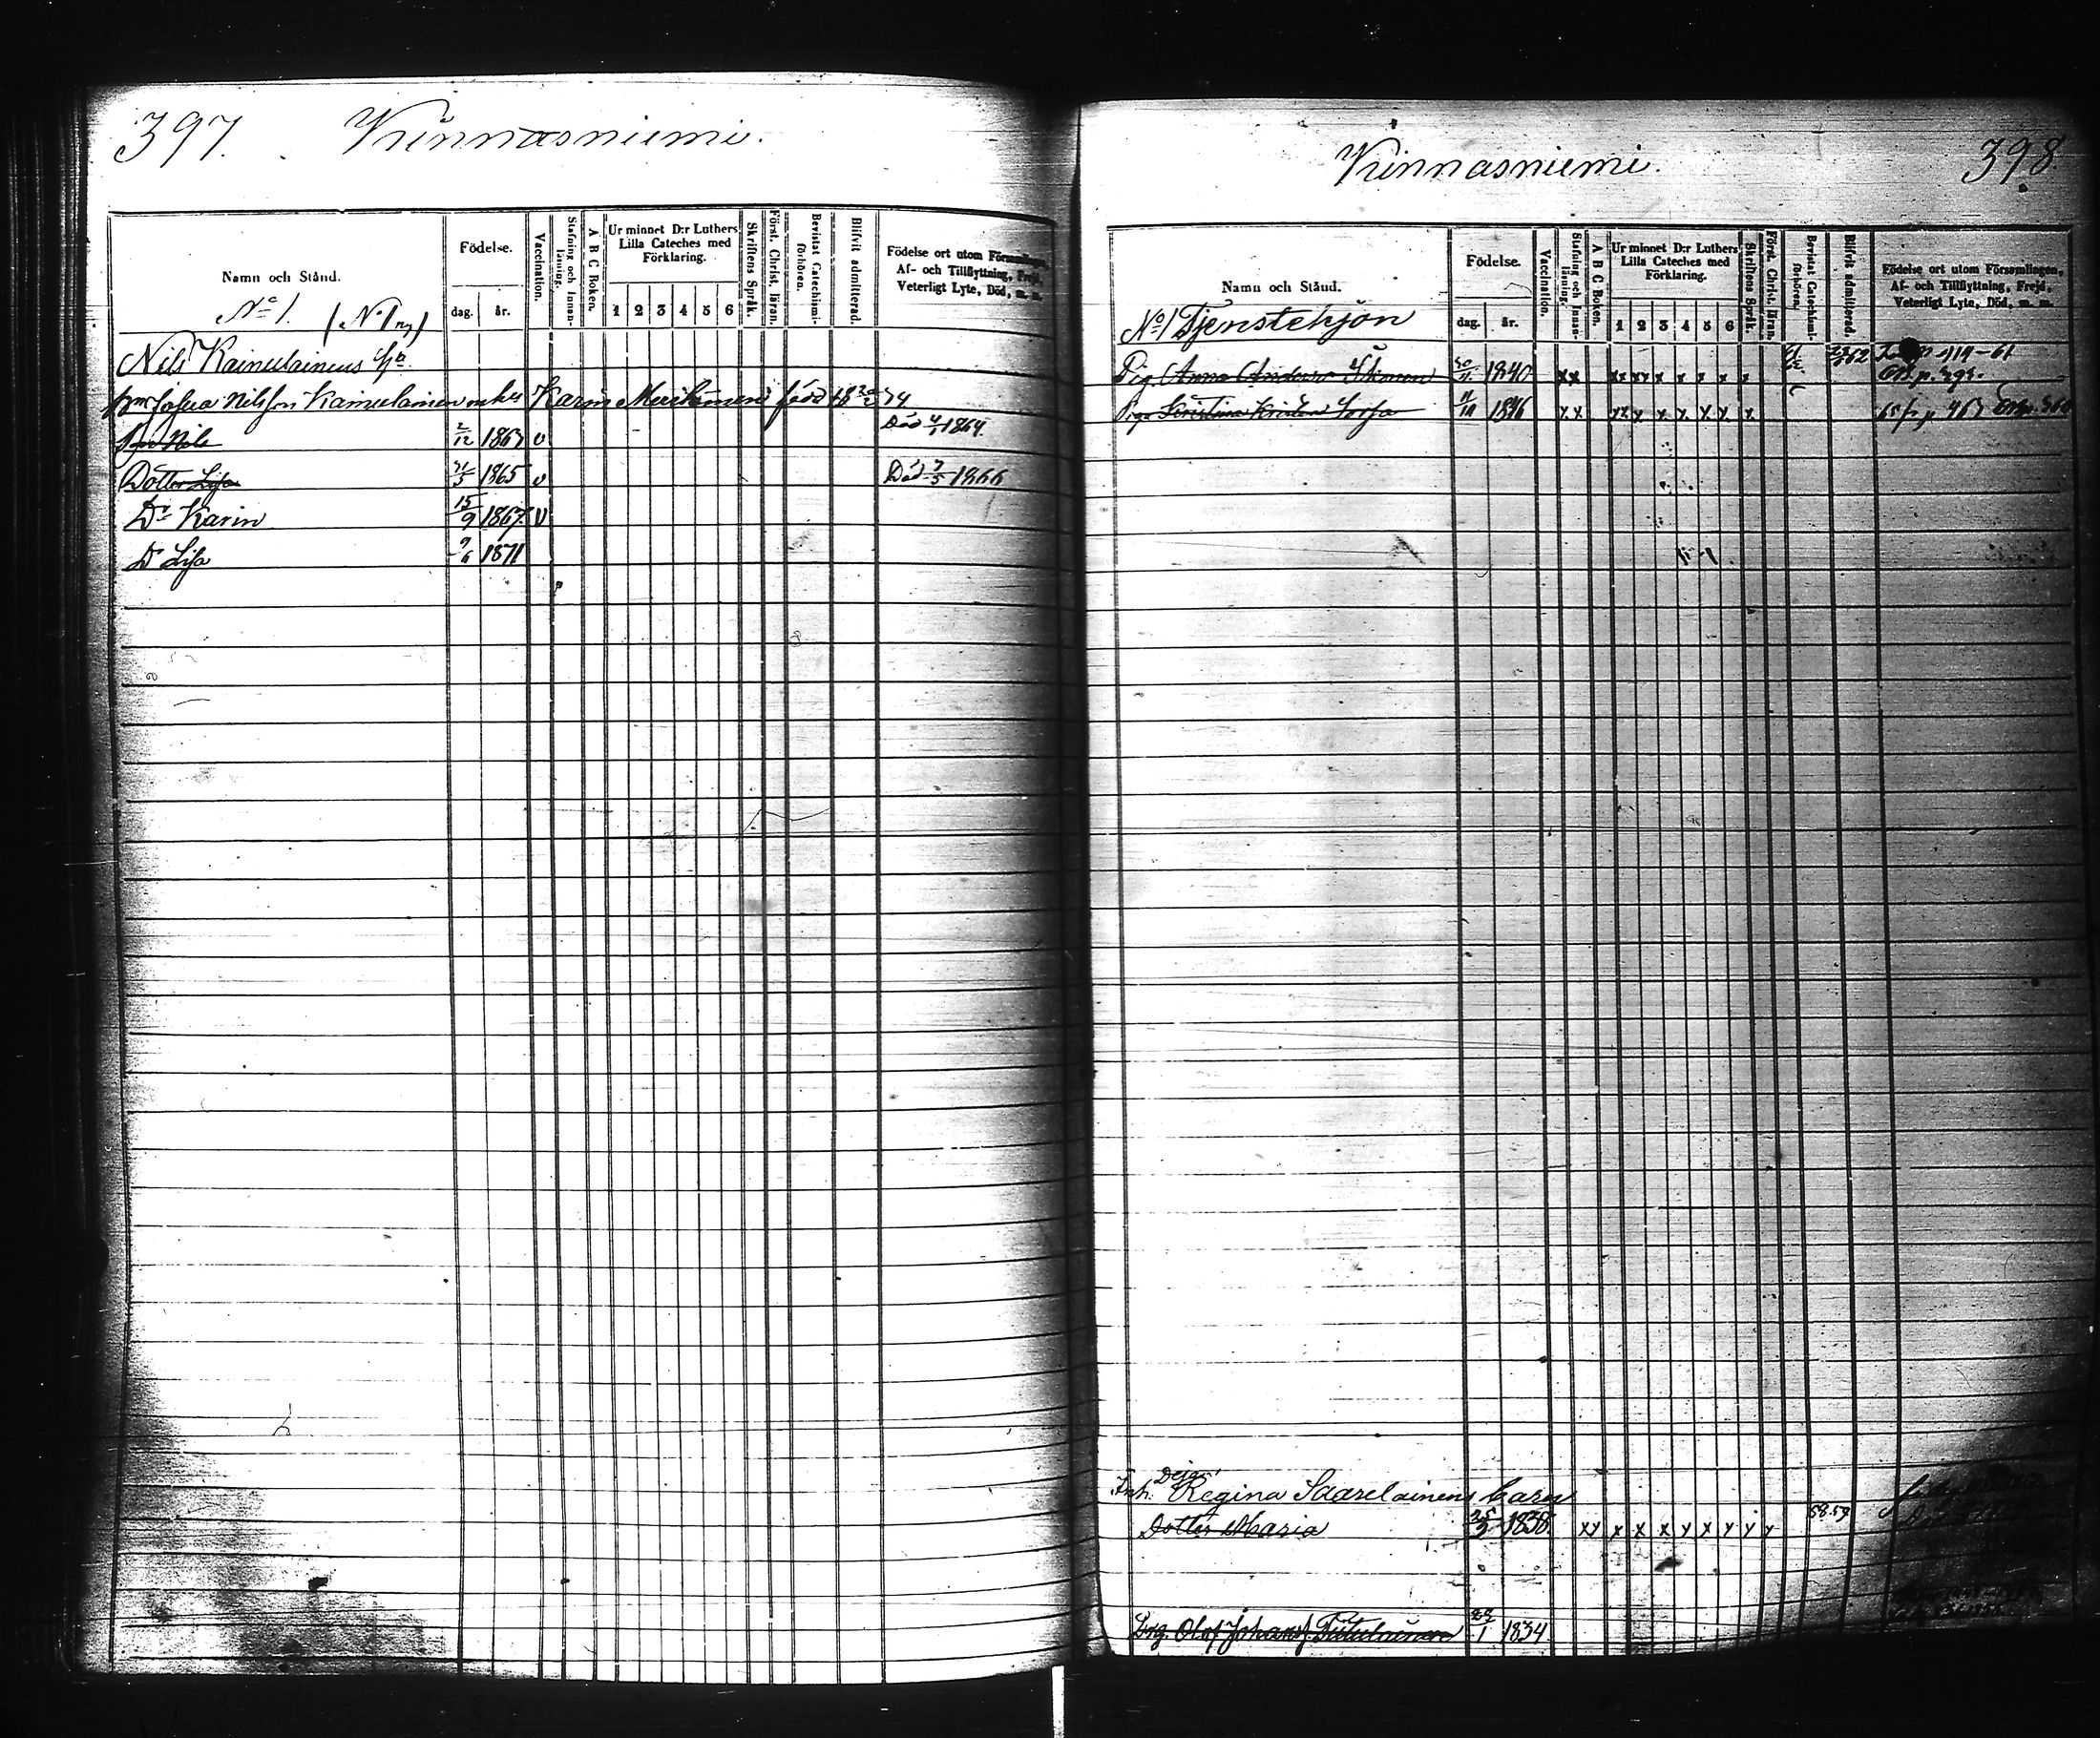 397. Kinnasniemi.
Namn och Stånd.
Födelse.
dag. år.
Vaccination.
Stafning och Innanläsning.
A B C Boken.
Ur minnet D:r Luthers Lilla Cateches med Förklaring.
1 2 3 4 5 6
Skriftens Språk.
Först. Christ. läran.
Bevistat Catechismi-förhören.
Blifvit admitterad.
Födelse ort utom Församlingen, Af- och Tillflyttning, Frejd, Veterligt Lyte, Död, m. m.
No 1. (No 1 ny)
Nils Kainulainens
Josua Nilsson Kainulainen Karin född 18 20/2 24
Nils 2/12 1863 v Död 4/1 1864.
Dotter Lisa 31/3 1865 v Död 7/3 1866
Dr Karin 15/9 1867 v
Dr Lisa 9/6 1871
Kinnasniemi. 398.
Namn och Stånd.
Födelse.
dag. år.
Vaccination.
Stafning och Innanläsning.
A B C Boken.
Ur minnet D:r Luthers Lilla Cateches med Förklaring.
1 2 3 4 5 6
Skriftens Språk.
Först. Christ. läran.
Bevistat Catechismi-förhören.
Blifvit admitterad.
Födelse ort utom Församlingen, Af- och Tillflyttning, Frejd, Veterligt Lyte, Död, m. m.
No 1 Tjenstehjon
Pig. Anna 1840 xx xx xx x x x x x 62 419-61
Pig. 11/10 1846 x x xx x x x x x x p 463
Inh. Regina Saarelainens barn
Dotter Maria 25/3 1838. xy x x x y x y y y 58.59
Drg. Olof Johansf. 1834